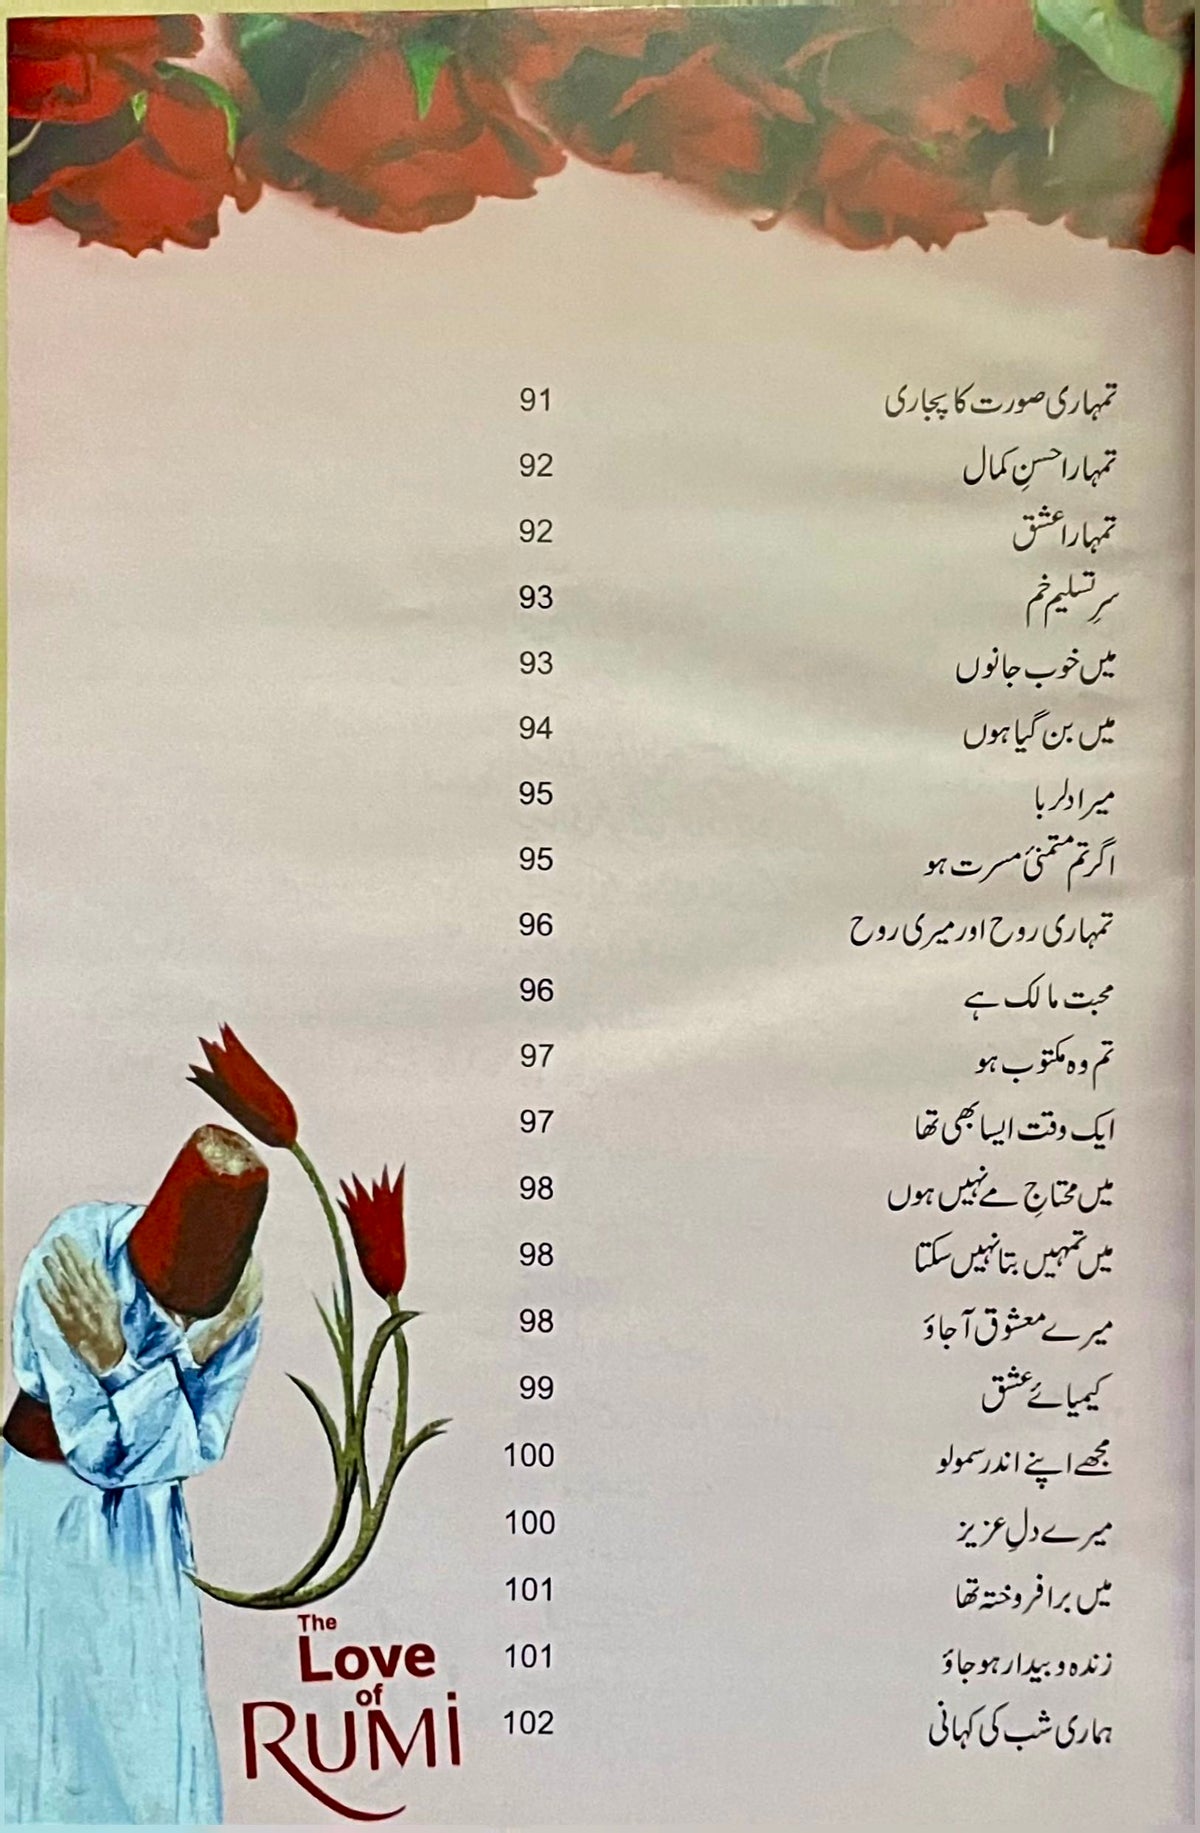 تمہاری صورت کا پجاری 91
تمہارا حسنِ کمال 92
تمہارا عشق 92
سرِ تسلیم خم 93
میں خوب جانوں 93
میں بن گیا ہوں 94
میرا دلربا 95
اگر تم متمنیٔ مسرت ہو 95
تمہاری روح اور میری روح 96
محبت مالک ہے 96
تم وہ مکتوب ہو 97
ایک وقت ایسا بھی تھا 97
میں محتاجِ مے نہیں ہوں 98
میں تمہیں بتا نہیں سکتا 98
میرے معشوق آ جاؤ 98
کیمیائے عشق 99
مجھے اپنے اندر سمو لو 100
میرے دلِ عزیز 100
میں برافروختہ تھا 101
زندہ و بیدار ہو جاؤ 101
ہماری شب کی کہانی 102
The
Love
of
RUMi